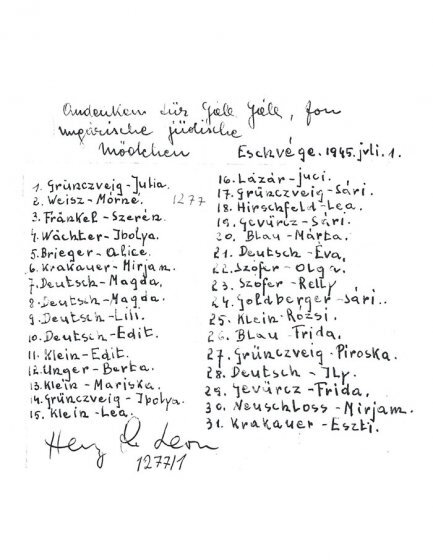 Andenken für Géle Géle, fon
ungärische jüdische
Mödchen
Eschvége. 1945. juli. 1.
1. Grünczveig-Julia.
2. Weisz-Mórné. 1277
3. Fränkel-Szerén.
4. Wächter-Ibolya.
5. Brieger-Alice.
6. Krakauer-Mirjam.
7. Deutsch-Magda.
8. Deutsch-Magda.
9. Deutsch-Lili.
10. Deutsch-Edit.
11. Klein-Edit.
12. Unger-Berta.
13. Klein-Mariska.
14. Grünczveig-Ibolya.
15. Klein-Lea.
16. Lázár-Juci.
17. Grünczveig-Sári.
18. Hirschfeld-Lea.
19. Gevürcz-Sári.
20. Blau-Márta.
21. Deutsch-Éva.
22. Szófer-Olga.
23. Szofer-Relly
24. Goldberger-Sári..
25. Klein-Rózsi.
26. Blau-Frida.
27. Grünczveig-Piroska.
28. Deutsch-Ily.
29. Gevürcz-Frida.
30. Neuschloss-Mirjam.
31. Krakauer-Eszti.
Leon
1277/1